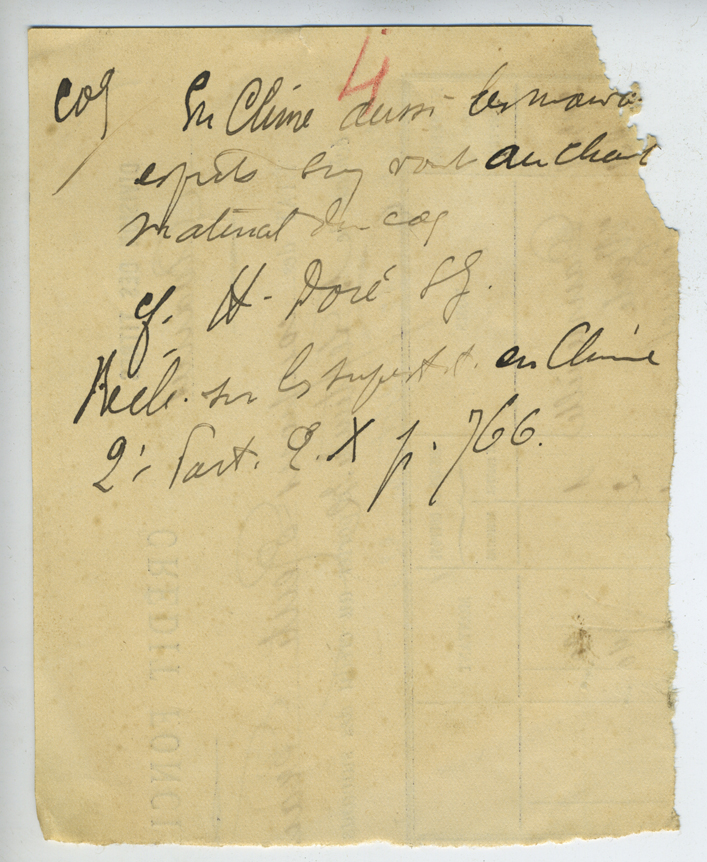 4
coq En Chine aussi les mauv
esprits s'en vont au chant
matinal du coq
cf. H. Doré S.J.
Rech. sur les superst. en Chine
2e Part. T. X p. 766.